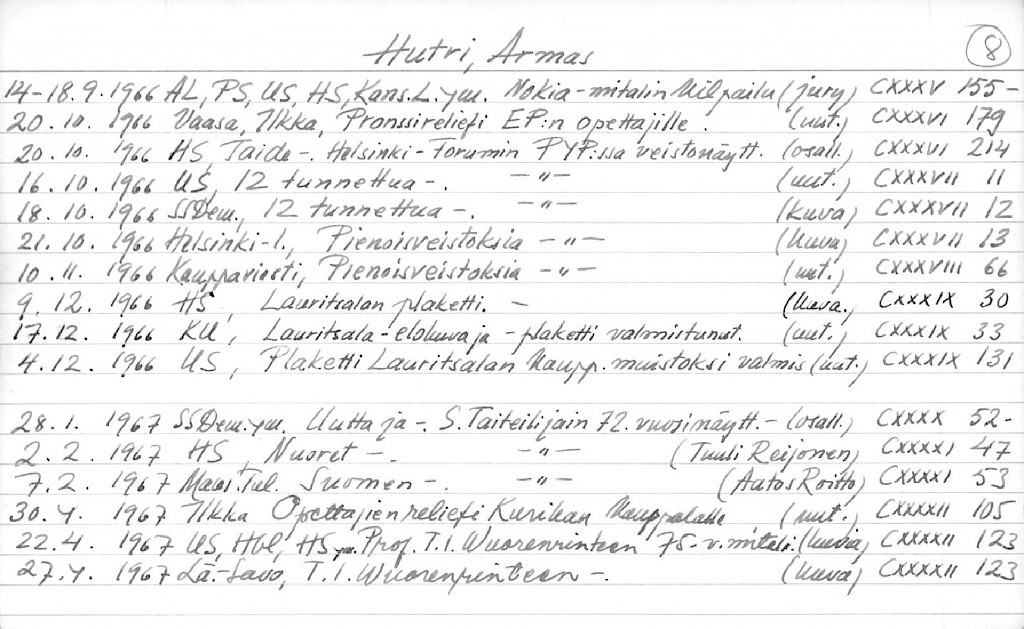 8
Hutri, Armas
14-18.9.1966 AL, PS, US, HS, Kans.L. ym. Nokia-mitalin kilpailu (jury) CXXXV 155-
20.10.1966 Vaasa, Ilkka, Pronssireliefi EP:n opettajille. (uut.) CXXXVI 179
20.10.1966 HS, Taide-. Helsinki-Forumin PYP:ssa veistonäytt. (osall.) CXXXVI 214
16.10.1966 US, 12 tunnettua-. -"- (uut.) CXXXVII 11
18.10.1966 SSDem., 12 tunnettua-. -"- (kuva) CXXXVII 12
21.10.1966 Helsinki-l., Pienoisveistoksia -"- (kuva) CXXXVII 13
10.11.1966 Kauppaviesti, Pienoisveistoksia -"- (uut.) CXXXVIII 66
9.12.1966 HS, Lauritsalan plaketti. - (kuva.) CXXXIX 30
17.12.1966 KU, Lauritsala-elokuva ja -plaketti valmistunut. (uut.) CXXXIX 33
4.12.1966 US, Plaketti Lauritsalan kaupp. muistoksi valmis (uut.) CXXXIX 131
28.1.1967 SSDem. ym. Uutta ja-. S. Taiteilijain 72. vuosinäytt. - (osall.) CXXXX 52-
2.2.1967 HS, Nuoret-. -"- (Tuuli Reijonen) CXXXXI 47
7.2.1967 Maas.Tul. Suomen-. -"- (Aatos Roitto) CXXXXI 53
30.4.1967 Ilkka Opettajienreliefi Kurikan kauppalalle (uut.) CXXXXII 105
22.4.1967 US, Hbl, HS ym. Prof. T.I. Wuorenrinteen 75-v. mitali. (kuvia) CXXXXII 123
27.4.1967 Lä.-Savo, T.I. Wuorenrinteen-. (kuva) CXXXXII 123